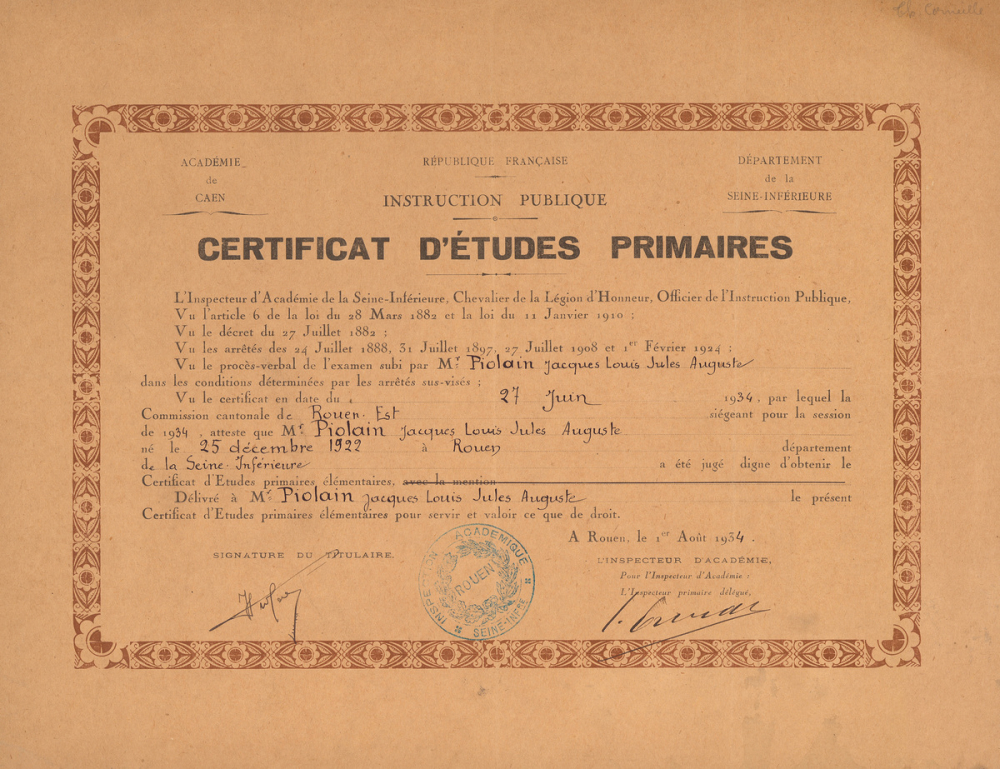 ACADÉMIE
de
CAEN
RÉPUBLIQUE FRANÇAISE
INSTRUCTION PUBLIQUE
DÉPARTEMENT
de la
SEINE-INFÉRIEURE
CERTIFICAT D'ÉTUDES PRIMAIRES
L'Inspecteur d'Académie de la Seine-Inférieure, Chevalier de la Légion d'Honneur, Officier de l'Instruction Publique,
Vu l'article 6 de la loi du 28 Mars 1882 et la loi du 11 Janvier 1910 ;
Vu le décret du 27 Juillet 1882 ;
Vu les arrêtés des 24 Juillet 1888, 31 Juillet 1897, 27 Juillet 1908 et 1er Février 1924 ;
Vu le procès-verbal de l'examen subi par Mr. Piolain Jacques Louis Jules Auguste
dans les conditions déterminées par les arrêtés sus-visés ;
Vu le certificat en date du 27 Juin 1934, par lequel la
Commission cantonale de Rouen-Est siégeant pour la session
de 1934, atteste que Mr. Piolain Jacques Louis Jules Auguste
né le 25 décembre 1922 à Rouen département
de la Seine-Inférieure a été jugé digne d'obtenir le
Certificat d'Etudes primaires élémentaires, avec la mention
Délivré à Mr. Piolain Jacques Louis Jules Auguste le présent
Certificat d'Etudes primaires élémentaires pour servir et valoir ce que de droit.
A Rouen, le 1er Août 1934.
SIGNATURE DU TITULAIRE,
L'INSPECTEUR D'ACADÉMIE,
Pour l'Inspecteur d'Académie :
L'Inspecteur primaire délégué,
INSPECTION ACADEMIQUE
ROUEN
SEINE-INFRE